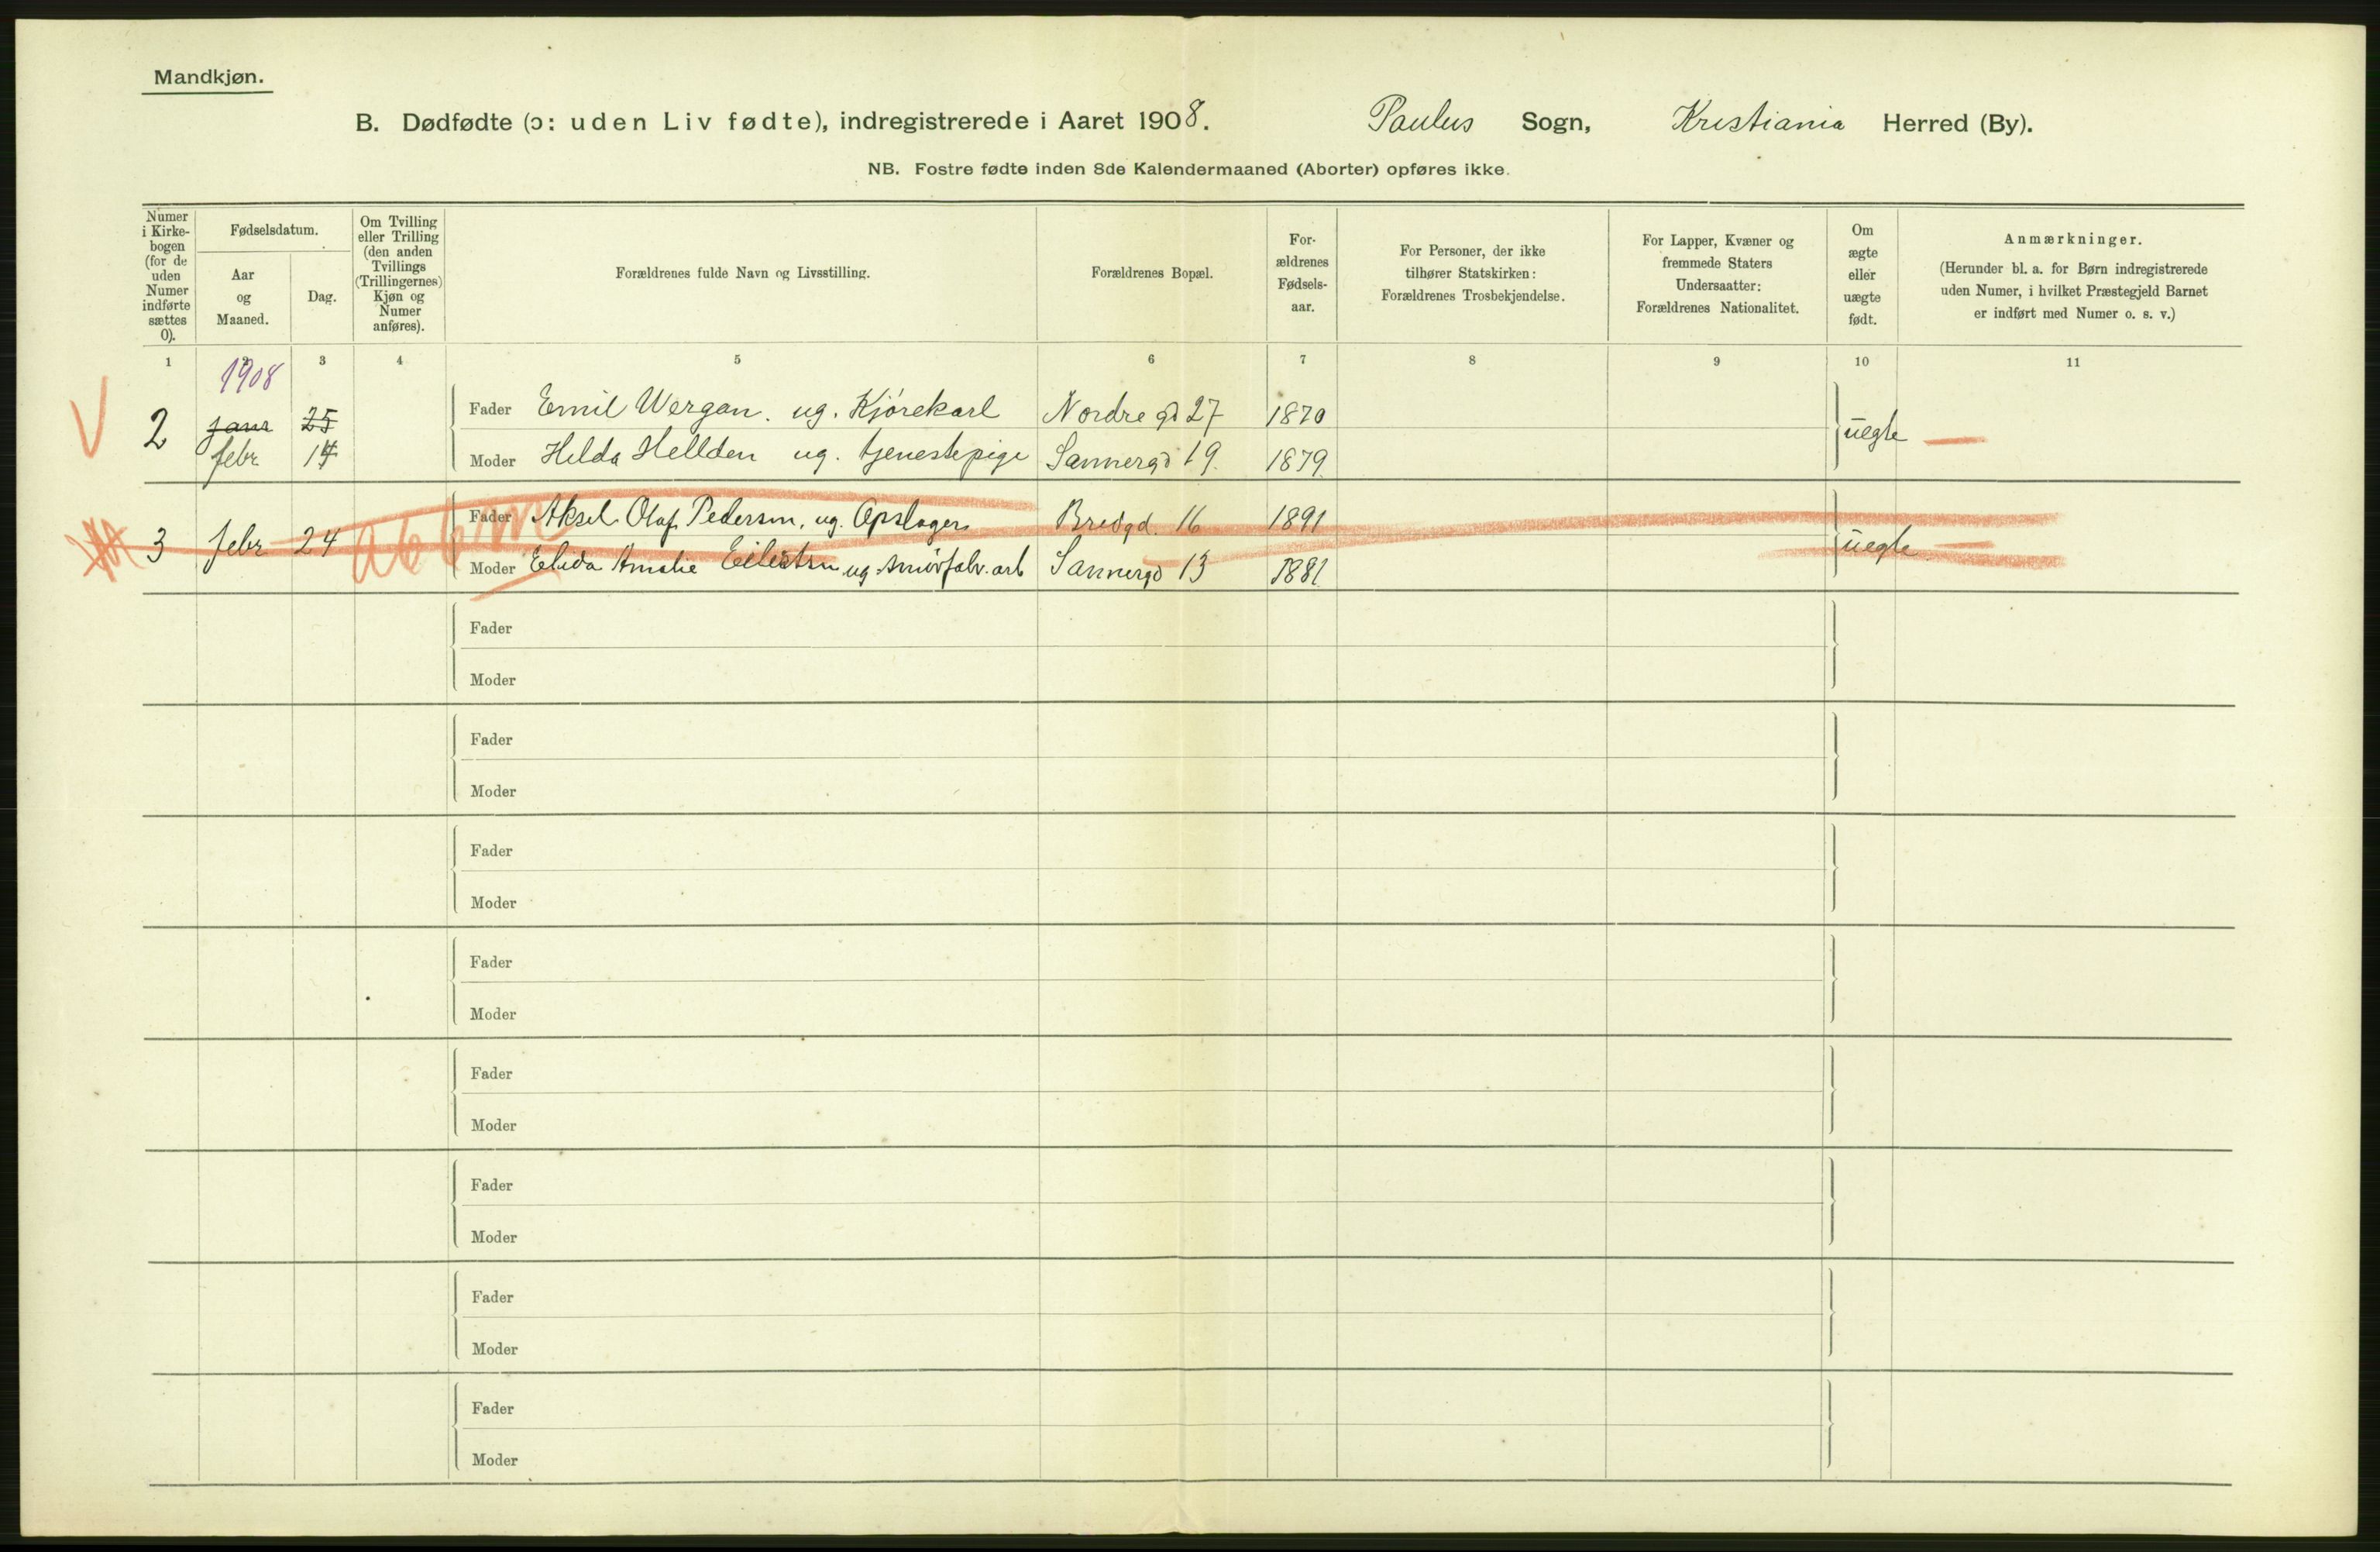 Mandkjøn.
B. Dødfødte (ɔ: uden Liv fødte), indregistrerede i Aaret 1908. Paulus Sogn, Kristiania Herred (By).
NB. Fostre fødte inden 8de Kalendermaaned (Aborter) opføres ikke.
Numer i Kirke-bogen (for de uden Numer indførte sættes 0).
Fødselsdatum.
Aar og Maaned.
Dag.
Om Tvilling eller Trilling (den anden Tvillings (Trillingernes) Kjøn og Numer anføres).
Forældrenes fulde Navn og Livsstilling.
Forældrenes Bopæl.
For-ældrenes Fødsels-aar.
For Personer, der ikke tilhører Statskirken: Forældrenes Trosbekjendelse.
For Lapper, Kvæner og fremmede Staters Undersaatter: Forældrenes Nationalitet.
Om ægte eller uægte født.
Anmærkninger.
(Herunder bl. a. for Børn indregistrerede uden Numer, i hvilket Præstegjeld Barnet er indført med Numer o. s. v.)
1 2 3 4 5 6 7 8 9 10 11
1908
2 janr 25 Fader Emil Wergan. ug. Kjørekarl Nordre gd 27 1870
febr 14 Moder Helda Hellden ug. tjenestepige Sannergd 19. 1879.
uegte —
3 febr 24 Fader Aksel Olaf Pedersen, ug. Opslager Bredgd. 16 1891
Moder Elida Amalie ug. arb Sannergd 13 1881.
uegte —
Fader
Moder
Fader
Moder
Fader
Moder
Fader
Moder
Fader
Moder
Fader
Moder
Fader
Moder
Fader
Moder